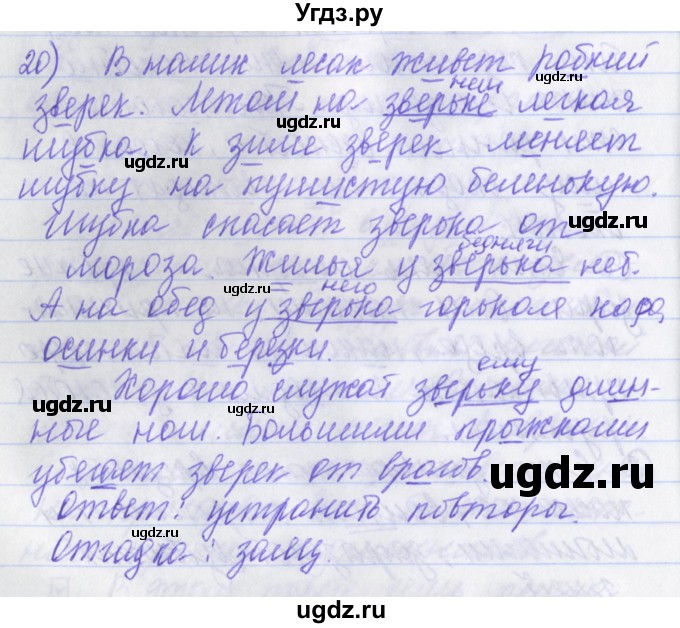 Угдз.ру
20) В наших лесах живет робкий
нем
зверек. Летом на зверьке легкая
шубка. К зиме зверек меняет
шубку на пушистую беленькую.
Шубка спасает зверька от
бедняги
мороза. Жилья у зверька нет.
него
А на обед у зверька горькая кора
осинки и берёзки.
ему
Хорошо служат зверьку длин-
ные ноги. Большими прыжками
убегает зверек от врагов.
Ответ: устранить повторы.
Отгадка: заяц.
ugdz.ru
ugdz.ru
ugdz.ru
ugdz.ru
ugdz.ru
ugdz.ru
ugdz.ru
ugdz.ru
ugdz.ru
ugdz.ru
ugdz.ru
ugdz.ru